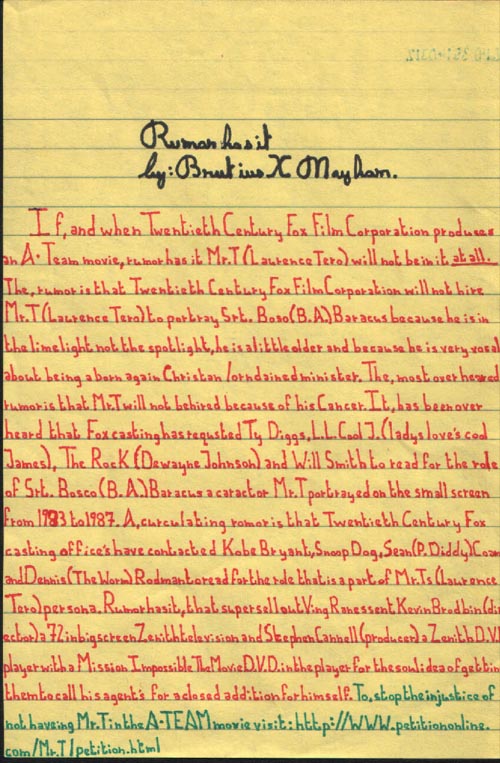 Rumor has it
by: Brutius X Mayham.
If, and when Twentieth Century Fox Film Corporation produces
an A-Team movie, rumor has it Mr.T (Laurence Tero) will not be in it at all.
The, rumor is that Twentieth Century Fox Film Corporation will not hire
Mr.T (Laurence Tero) to portray Srt. Boso (B.A.) Baracus because he is in
the limelight not the spotlight, he is a little older and because he is very vosal
about being a born again Christan /orndained minister. The, most over heared
rumor is that Mr.T will not be hired because of his Cancer. It, has been over
heard that Fox casting has requsted Ty Diggs, L.L. Cool J. (ladys love's cool
James), The Rock (Dewayne Johnson) and Will Smith to read for the role
of Srt. Bosco (B.A.) Baracus a caractor Mr.T portrayed on the small screen
from 1983 to 1987. A, curculating romor is that Twentieth Century Fox
casting office's have contacted Kobe Bryant, Snoop Dog, Sean (P. Diddy) Coam
and Dennis (The Worm) Rodman to read for the role that is a part of Mr.Ts (Laurence
Tero) persona. Rumor has it, that super sell out Ving Ranes sent Kevin Brodbin (dir
ector) a 72 in big screen Zenith television and Stephen Cannell (producer) a Zenith D.V.D
player with a Mission Impossible The Movie D.V.D. in the player for the soul idea of gettin
them to call his agent's for a closed addition for himself. To, stop the injustice of
not haveing Mr.T in the A-TEAM movie visit: http://WWW.petitiononline.
com/Mr.T/petition.html